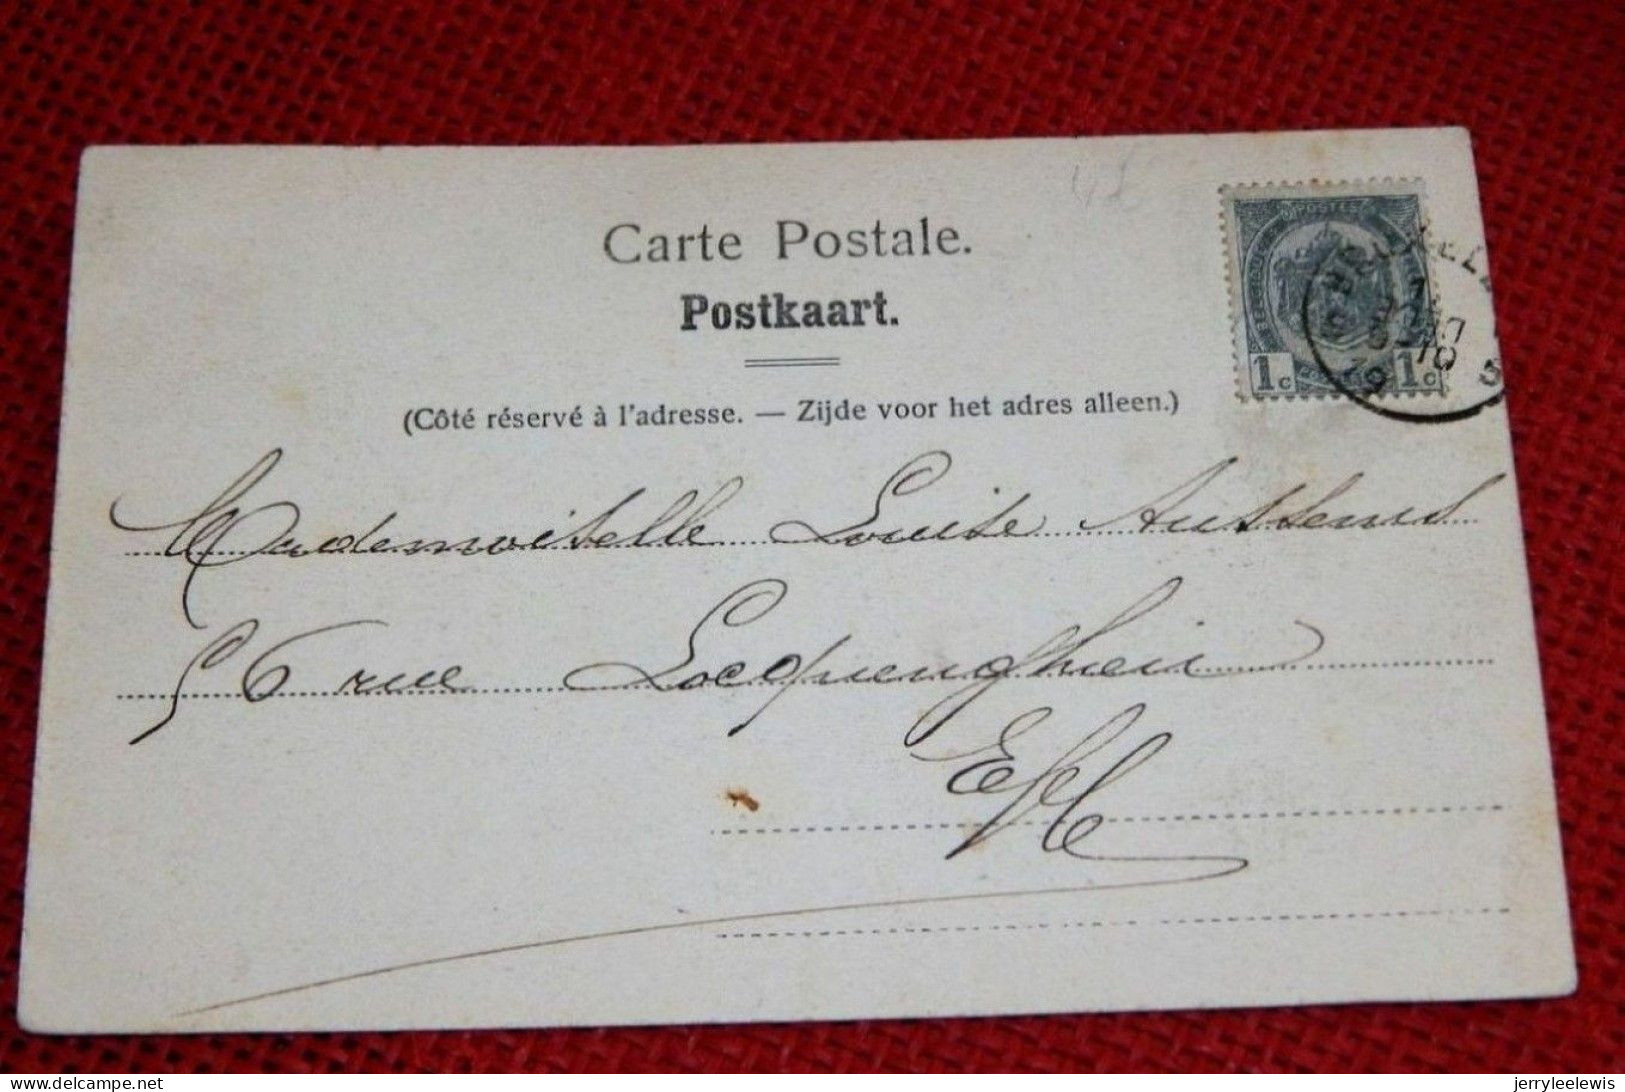 Carte Postale.
Postkaart.
(Côté réservé à l'adresse. — Zijde voor het adres alleen.)
POSTES
1c 1c
Mademoiselle Louise Aussems
56 rue Locquenghien
E/V
delcampe.net
jerryleelewis